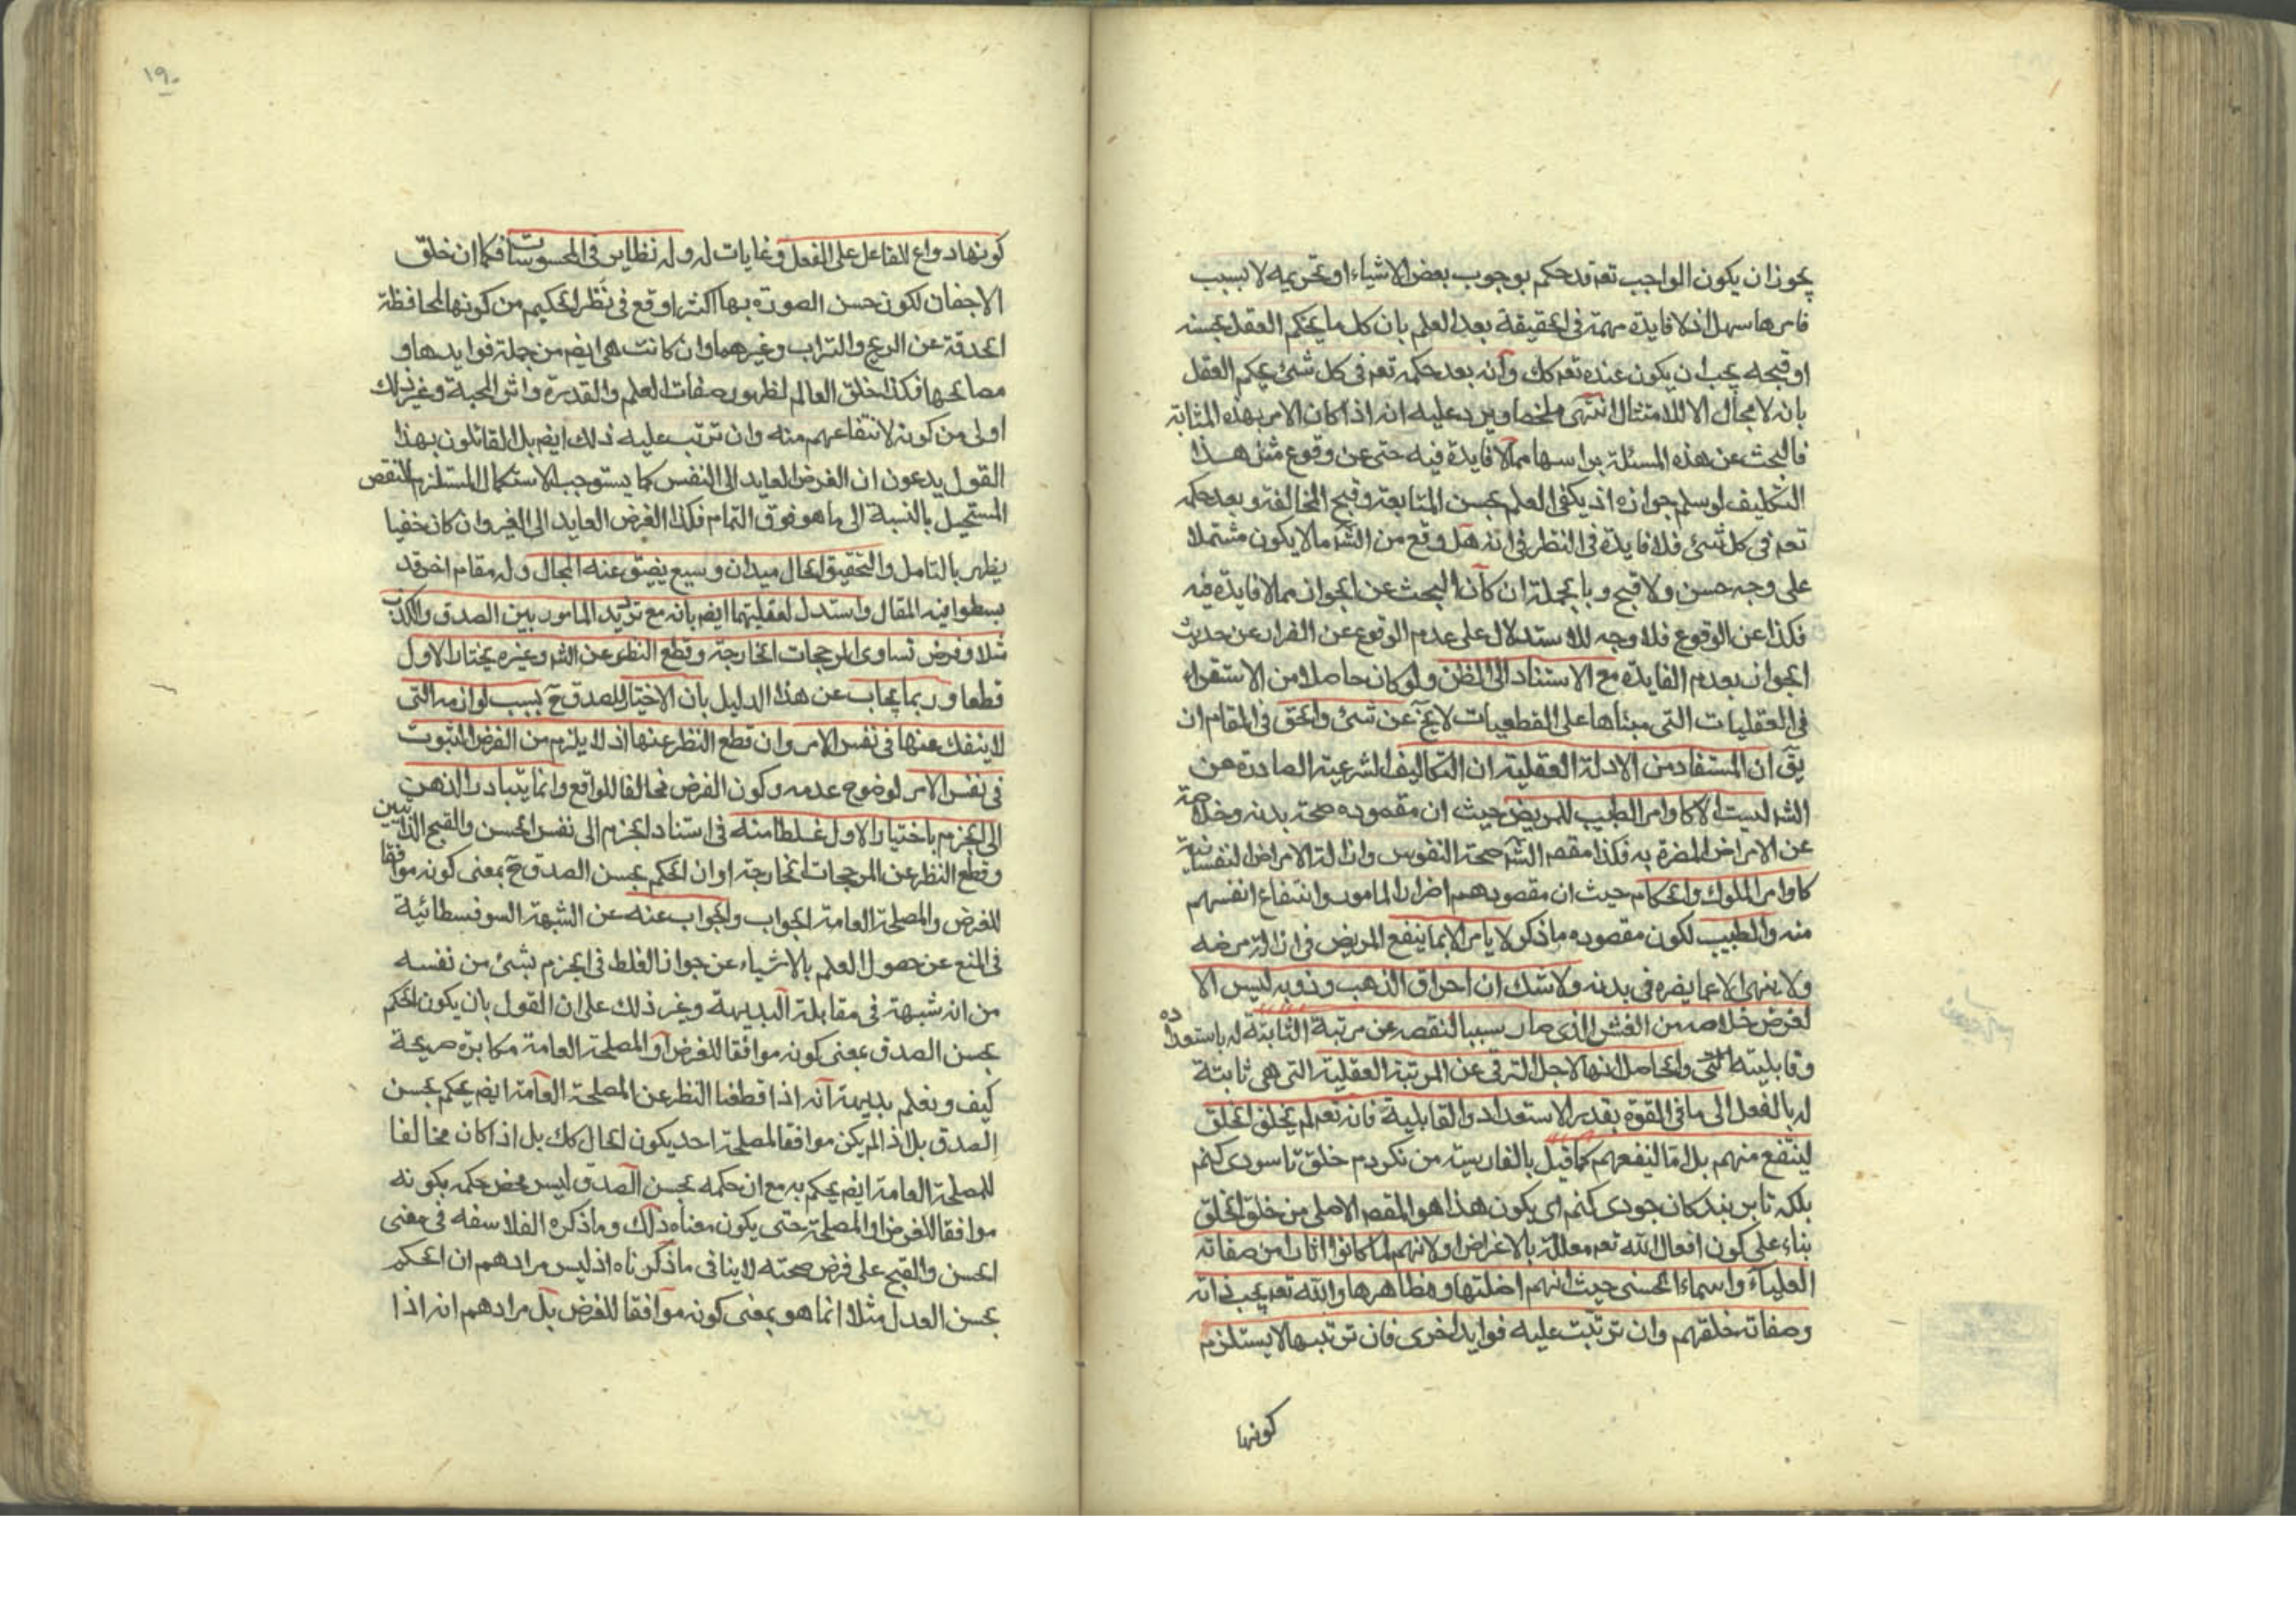 يجوز ان يكون الواجب تعم قد حكم بوجوب بعض الاشياء او تحريمه لا بسبب
فامرها سهل اذ لا فايدة مهمة فى الحقيقة بعد العلم بان كل ما يحكم العقل بحسنه
او قبحه يجب ان يكون عنده تعم كك وانه بعد حكمه تعم فى كل شئ يحكم العقل
بانه لا مجال الا للامتثال انتهى ملخصا ويرد عليه انه اذا كان الامر بهذه المثابة
فالبحث عن هذه المسئلة براسها مما لا فايدة فيه حتى عن وقوع مثل هذا
التكليف لو سلم جوازه اذ يكفى العلم بحسن المتابعة وقبح المخالفة وبعد حكمه
تعم فى كل شئ فلا فايدة فى النظر فى انه هل وقع من الشم ما لا يكون مشتملا
على وجه حسن ولا قبح وبالجملة ان كان البحث عن الجواز مما لا فايدة فيه
فكذا عن الوقوع فلا وجه للاستدلال على عدم الوقوع عن الفرار عن حديث
الجواز بعدم الفايدة مع الاستناد الى الظن ولو كان حاصلا من الاستقراء
فى العقليات التى مبناها على القطعيات لا يخ عن شئ والحق فى المقام ان
يق ان المستفاد من الادلة العقلية ان التكاليف الشرعية الصادرة عن
الشم ليست الا كاوامر الطبيب للمريض حيث ان مقصوده صحة بدنه وخلاصه
عن الامراض المضرة به فكذا مقصم الشم صحة النفوس وازالة الامراض النفسانية
كاوامر الملوك والحكام حيث ان مقصودهم اضرار المامور وانتفاع انفسهم
منه والطبيب لكون مقصوده ما ذكر لا يامر الا بما ينفع المريض فى ازالة مرضه
ولا ينهى الا عما يضره فى بدنه ولا شك ان احراق الذهب وذوبه ليس الا
لغرض خلاصه من الغش الذى صار سببا لنقصه عن مرتبة الثابتة له باستعداده
وقابليته التى والحاصل انها لاجل الترقى عن المرتبة العقلية التى هى ثابتة
له بالفعل الى ما فى القوة بقدر الاستعداد والقابلية فانه تعم لم يخلق الخلق
لينتفع منهم بل اما لنفعهم كما قيل بالفارسية من نكردم خلق تا سودى كنم
بلكه تا بر بندكان جودى كنم اى يكون هذا هو المقصم الاصلى من خلق الخلق
بناء على كون افعال الله تعم معللة بالاغراض او لانهم لما كانوا اثارا من صفاته
العلياء واسماء الحسنى حيث انهم اظلتها ومظاهرها والله تعم يحب ذاته
وصفاته خلقهم وان ترتبت عليه فوايد اخرى فان ترتبها لا يستلزم
كونها
١٩٠
كونها دواع للفاعل على الفعل وغايات له وله نظاير فى المحسوسات فكما ان خلق
الاجفان لكون حسن الصورة بها اكثر اوقع فى نظر الحكيم من كونها لمحافظة
الحدقة عن الريح والتراب وغيرهما وان كانت هى ايضم من جملة فوايدها و
مصالحها فكذا خلق العالم لظهور صفات العلم والقدرة واثر المحبة وغير ذلك
اولى من كونه لانتفاعهم منه وان ترتب عليه ذلك ايضم بل القائلون بهذا
القول يدعون ان الغرض العايد الى النفس كما يستوجب الاستكمال المستلزم للنقص
المستحيل بالنسبة الى ما هو فوق التمام فكذا الغرض العايد الى الغير وان كان خفيا
يظهر بالتامل والتحقيق الحال ميدان وسيع يضيق عنه المجال وله مقام اخر قد
بسطوا فيه المقال واستدل لعقليتهما ايضم بانه مع ترديد المامور بين الصدق والكذب
مثلا وفرض تساوى المرجحات الخارجة وقطع النظر عن الشم وغيره يختار الاول
قطعا وربما يجاب عن هذا الدليل بان الاختيار للصدق ح بسبب لوازمه التى
لا ينفك عنها فى نفس الامر وان قطع النظر عنها اذ لا يلزم من الفرض الثبوت
فى نفس الامر لوضوح عدمه وكون الفرض مخالفا للواقع وانما يتبادر الذهن
الى الجزم باختيار الاول غلطا منه فى اسناد الجزم الى نفس الحسن والقبح الذاتيين
وقطع النظر عن المرجحات الخارجة او ان الحكم بحسن الصدق ح بمعنى كونه موافقا
للغرض والمصلحة العامة الجواب والجواب عنه عن الشبهة السوفسطائية
فى المنع عن حصول العلم بالاشياء عن جواز الغلط فى الجزم بشئ من نفسه
من انه شبهة فى مقابلة البديهة وغير ذلك على ان القول بان يكون الحكم
بحسن الصدق بمعنى كونه موافقا للغرض او المصلحة العامة مكابرة صريحة
كيف ونعلم بديهة انه اذا قطعنا النظر عن المصلحة العامة ايضم يحكم بحسن
الصدق بل اذا لم يكن موافقا لمصلحة احد يكون الحال كك بل اذا كان مخالفا
للمصلحة العامة ايضم يحكم به مع ان حكمه بحسن الصدق ليس محض حكمه بكونه
موافقا للغرض او المصلحة حتى يكون معناه ذلك وما ذكره الفلاسفه فى معنى
الحسن والقبح على فرض صحته لا ينافى ما ذكرناه اذ ليس مرادهم ان الحكم
بحسن العدل مثلا انما هو بمعنى كونه موافقا للغرض بل مرادهم انه اذا